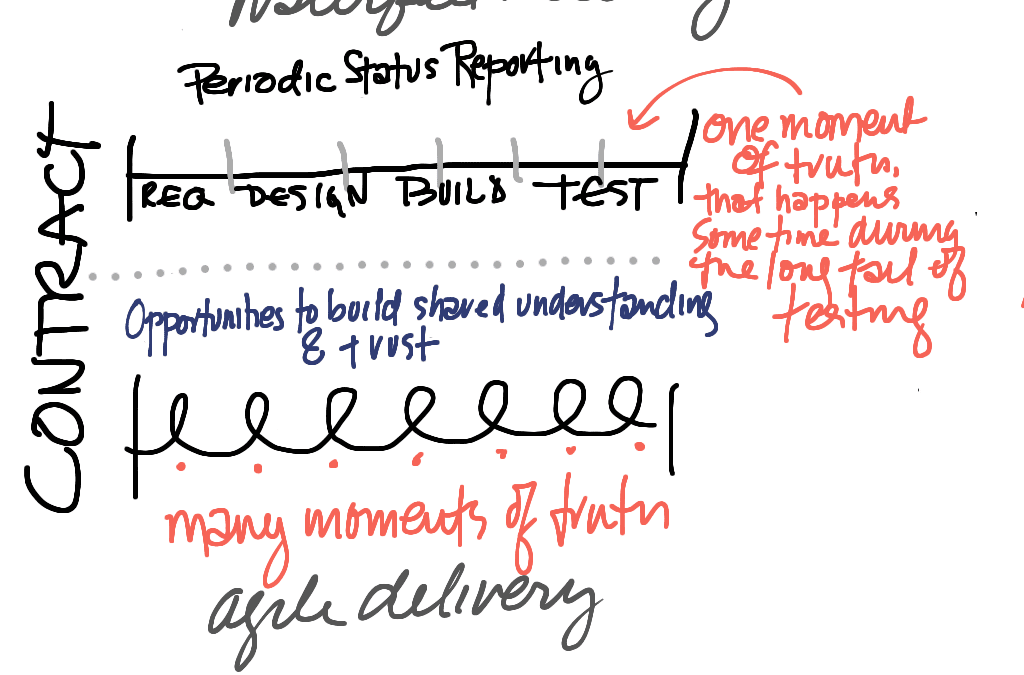 Periodic Status Reporting
REQ DESIGN BUILD TEST
one moment
of truth,
that happens
some time during
the long tail of
testing
CONTRACT
Opportunities to build shared understanding
& trust
many moments of truth
agile delivery